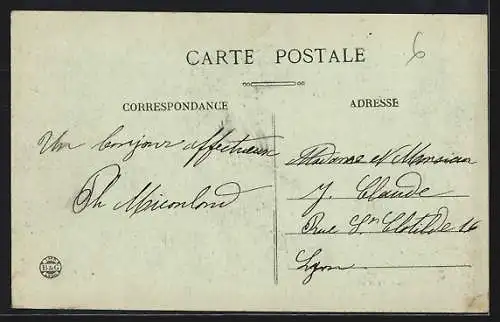 6
CARTE POSTALE
CORRESPONDANCE
Un bonjour affectueux
Ph
ADRESSE
Madame et Monsieur
J. Claude
Rue Ste Clotilde 16
Lyon
B&G